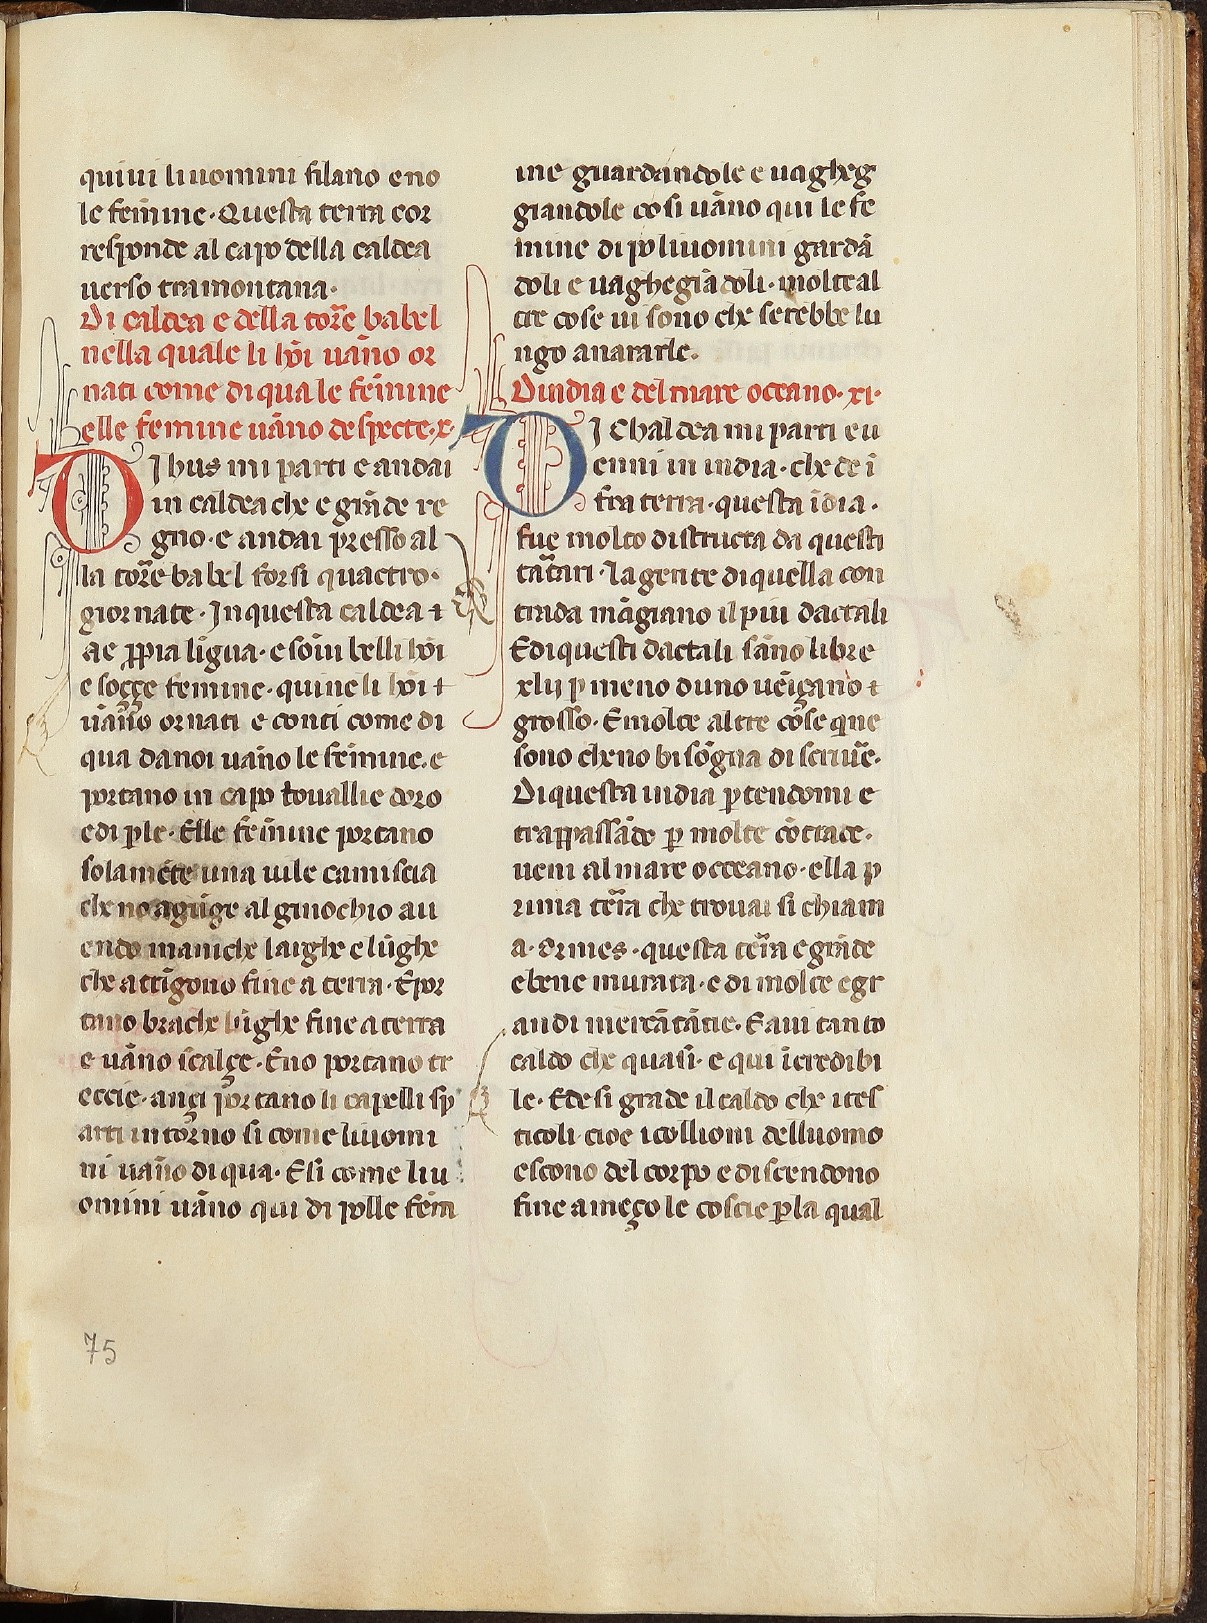 quiui liuomini filano e no
le femine · Questa terra cor
responde al capo della caldea
uerso tramontana ·
Di caldea e della tore babel
nella quale li hōi uāno or
nati come di qua le femine
elle femine uāno despecte · x ·
DI hus mi parti e andai
in caldea che e grāde re
gno · e andai presso al
la tore babel forsi quactro ·
giornate · In questa caldea ⁊
ae ꝓpia līgua · e sōui belli hōi
e soççe femine · quiue li hōi ⁊
uāno ornati e conti come di
qua da noi uāno le femine · e
portano in capo touallie doro
e di ple · Elle femine portano
solamēte una uile camiscia
che no agiūge al ginochio au
endo maniche larghe e lūghe
che attīgono fine a terra · E por
tano brache lūghe fine a terra
e uāno īcalçe · E no portano tr
eccie · ançi portano li capelli sp
arti intorno si come liuomi
ni uāno di qua · E si come liu
omini uāno qui di polle fem
ine guardandole e uagheg
giandole cosi uāno qui le fe
mine di po liuomini gardā
doli e uaghegiādoli · molte al
tre cose ui sono che serebbe lu
ngo anararle ·
D india e del mare oceano · xi ·
DI Chaldea mi parti e u
enni in india · che de ī
fra terra · questa īdia ·
fue molto distructa da questi
tātari · la gente di quella con
trada māgiano il piu dactali
E di questi dactali sāno libre
xlij p meno duno ueīçano ⁊
grosso · E molte altre cose que
sono che no bisōgna di scriuē ·
Di questa india ꝑtendomi e
trappassādo ꝑ molte cōtrade ·
ueni al mare occeano · ella p
rima tēra che trouai si chiam
a · ormes · questa tēra e grāde
e bene murata · e di molte e gr
andi mercātātie · E aui tanto
caldo che quasi · e qui īcredibi
le · E de si grade il caldo che i tes
ticoli cioe i collioni delluomo
escono del corpo e discendono
fine a meço le coscie ꝑ la qual
75